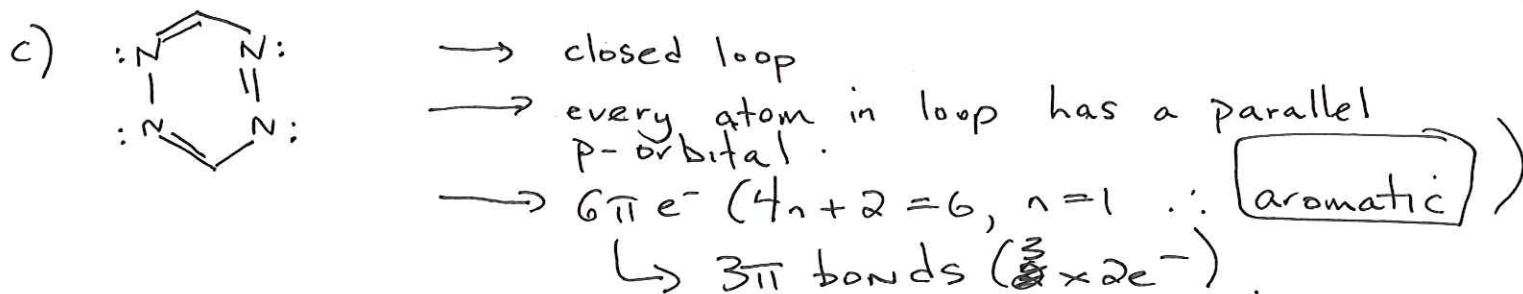 c) :N N: → closed loop
:N N: → every atom in loop has a parallel
p-orbital.
→ 6π e⁻ (4n+2=6, n=1 ∴ aromatic)
↳ 3π bonds (3×2e⁻).